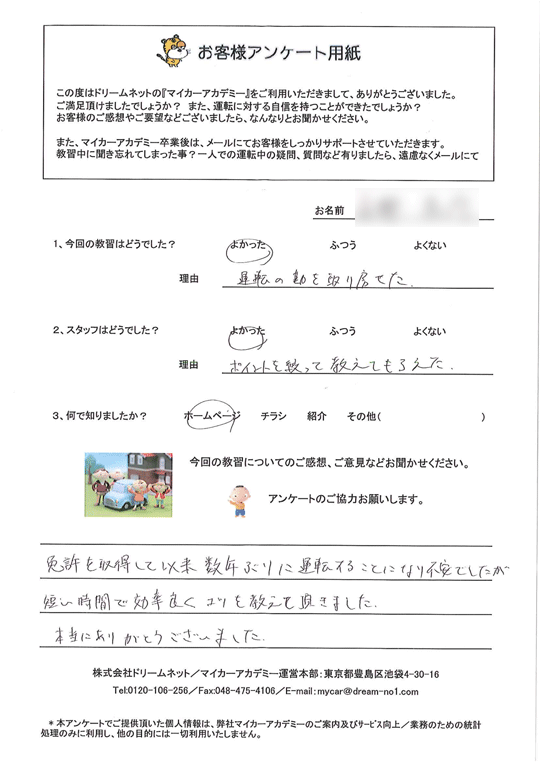 お客様アンケート用紙
この度はドリームネットの『マイカーアカデミー』をご利用いただきまして、ありがとうございました。
ご満足頂けましたでしょうか？ また、運転に対する自信を持つことができたでしょうか？
お客様のご感想やご要望などございましたら、なんなりとお聞かせください。
また、マイカーアカデミー卒業後は、メールにてお客様をしっかりサポートさせていただきます。
教習中に聞き忘れてしまった事？一人での運転中の疑問、質問など有りましたら、遠慮なくメールにて
お名前
1、今回の教習はどうでした？ よかった ふつう よくない
理由 運転の勘を取り戻せた.
2、スタッフはどうでした？ よかった ふつう よくない
理由 ポイントを絞って教えてもらえた.
3、何で知りましたか？ ホームページ チラシ 紹介 その他( )
今回の教習についてのご感想、ご意見などお聞かせください。
アンケートのご協力お願いします。
免許を取得して以来数年ぶりに運転することになり不安でしたが
短い時間で効率良くコツを教えて頂きました.
本当にありがとうございました.
株式会社ドリームネット／マイカーアカデミー運営本部：東京都豊島区池袋4-30-16
Tel:0120-106-256／Fax:048-475-4106／E-mail:mycar@dream-no1.com
＊本アンケートでご提供頂いた個人情報は、弊社マイカーアカデミーのご案内及びサービス向上／業務のための統計
処理のみに利用し、他の目的には一切利用いたしません。